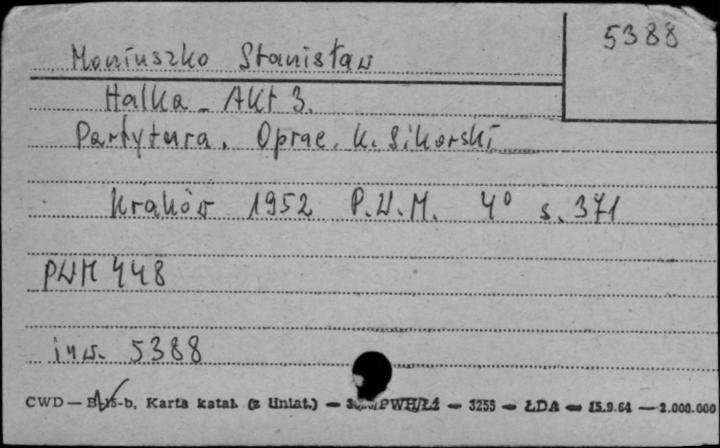 5388
Moniuszko Stanisław
Halka - Akt 3.
Partytura. Oprac. K. Sikorski
Kraków 1952 P.W.M. 4° s. 371
PWM 448
inw. 5388
CWD — -b, Karta katal. (z liniat.) — PWH/Łź — 3255 — ŁDA — 15.9.64 — 2.000.000